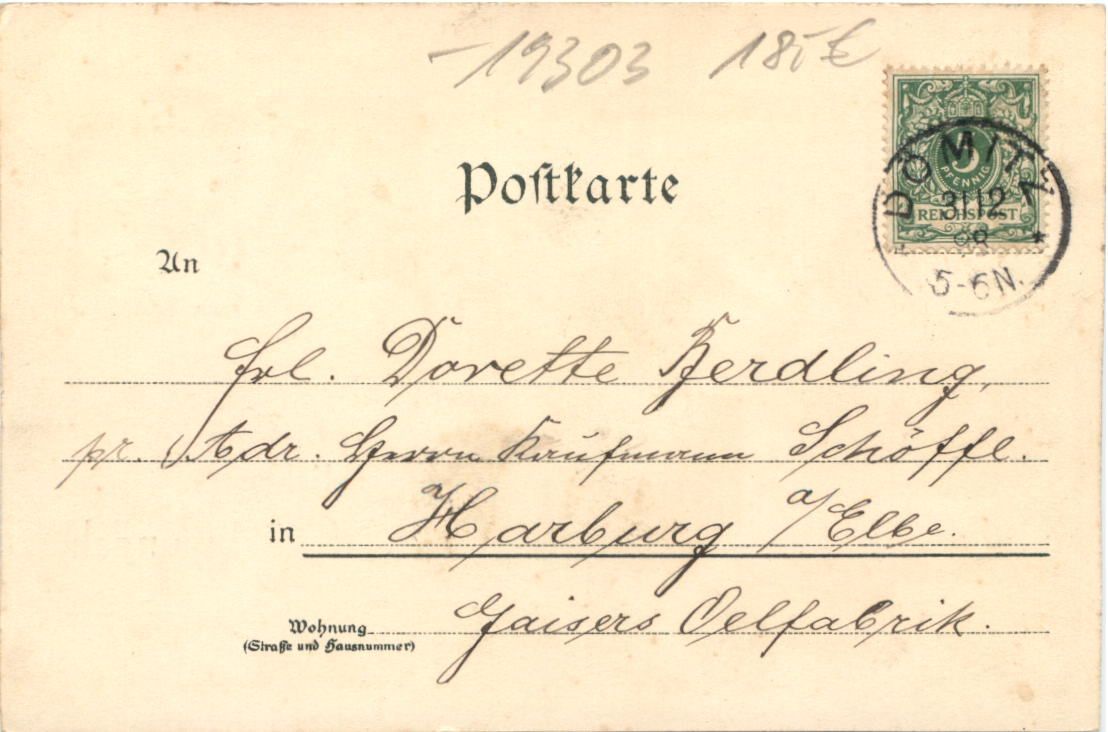 -19303 18,-€
Postkarte
DÖMITZ
5
PFENNIG
31 12
REICHSPOST
98
5-6N.
An
Frl. Dorette Herdling,
pr. Adr. Herrn Kaufmann Schöffl.
in Harburg a/Elbe.
Gaisers Oelfabrik.
Wohnung
(Straße und Hausnummer)